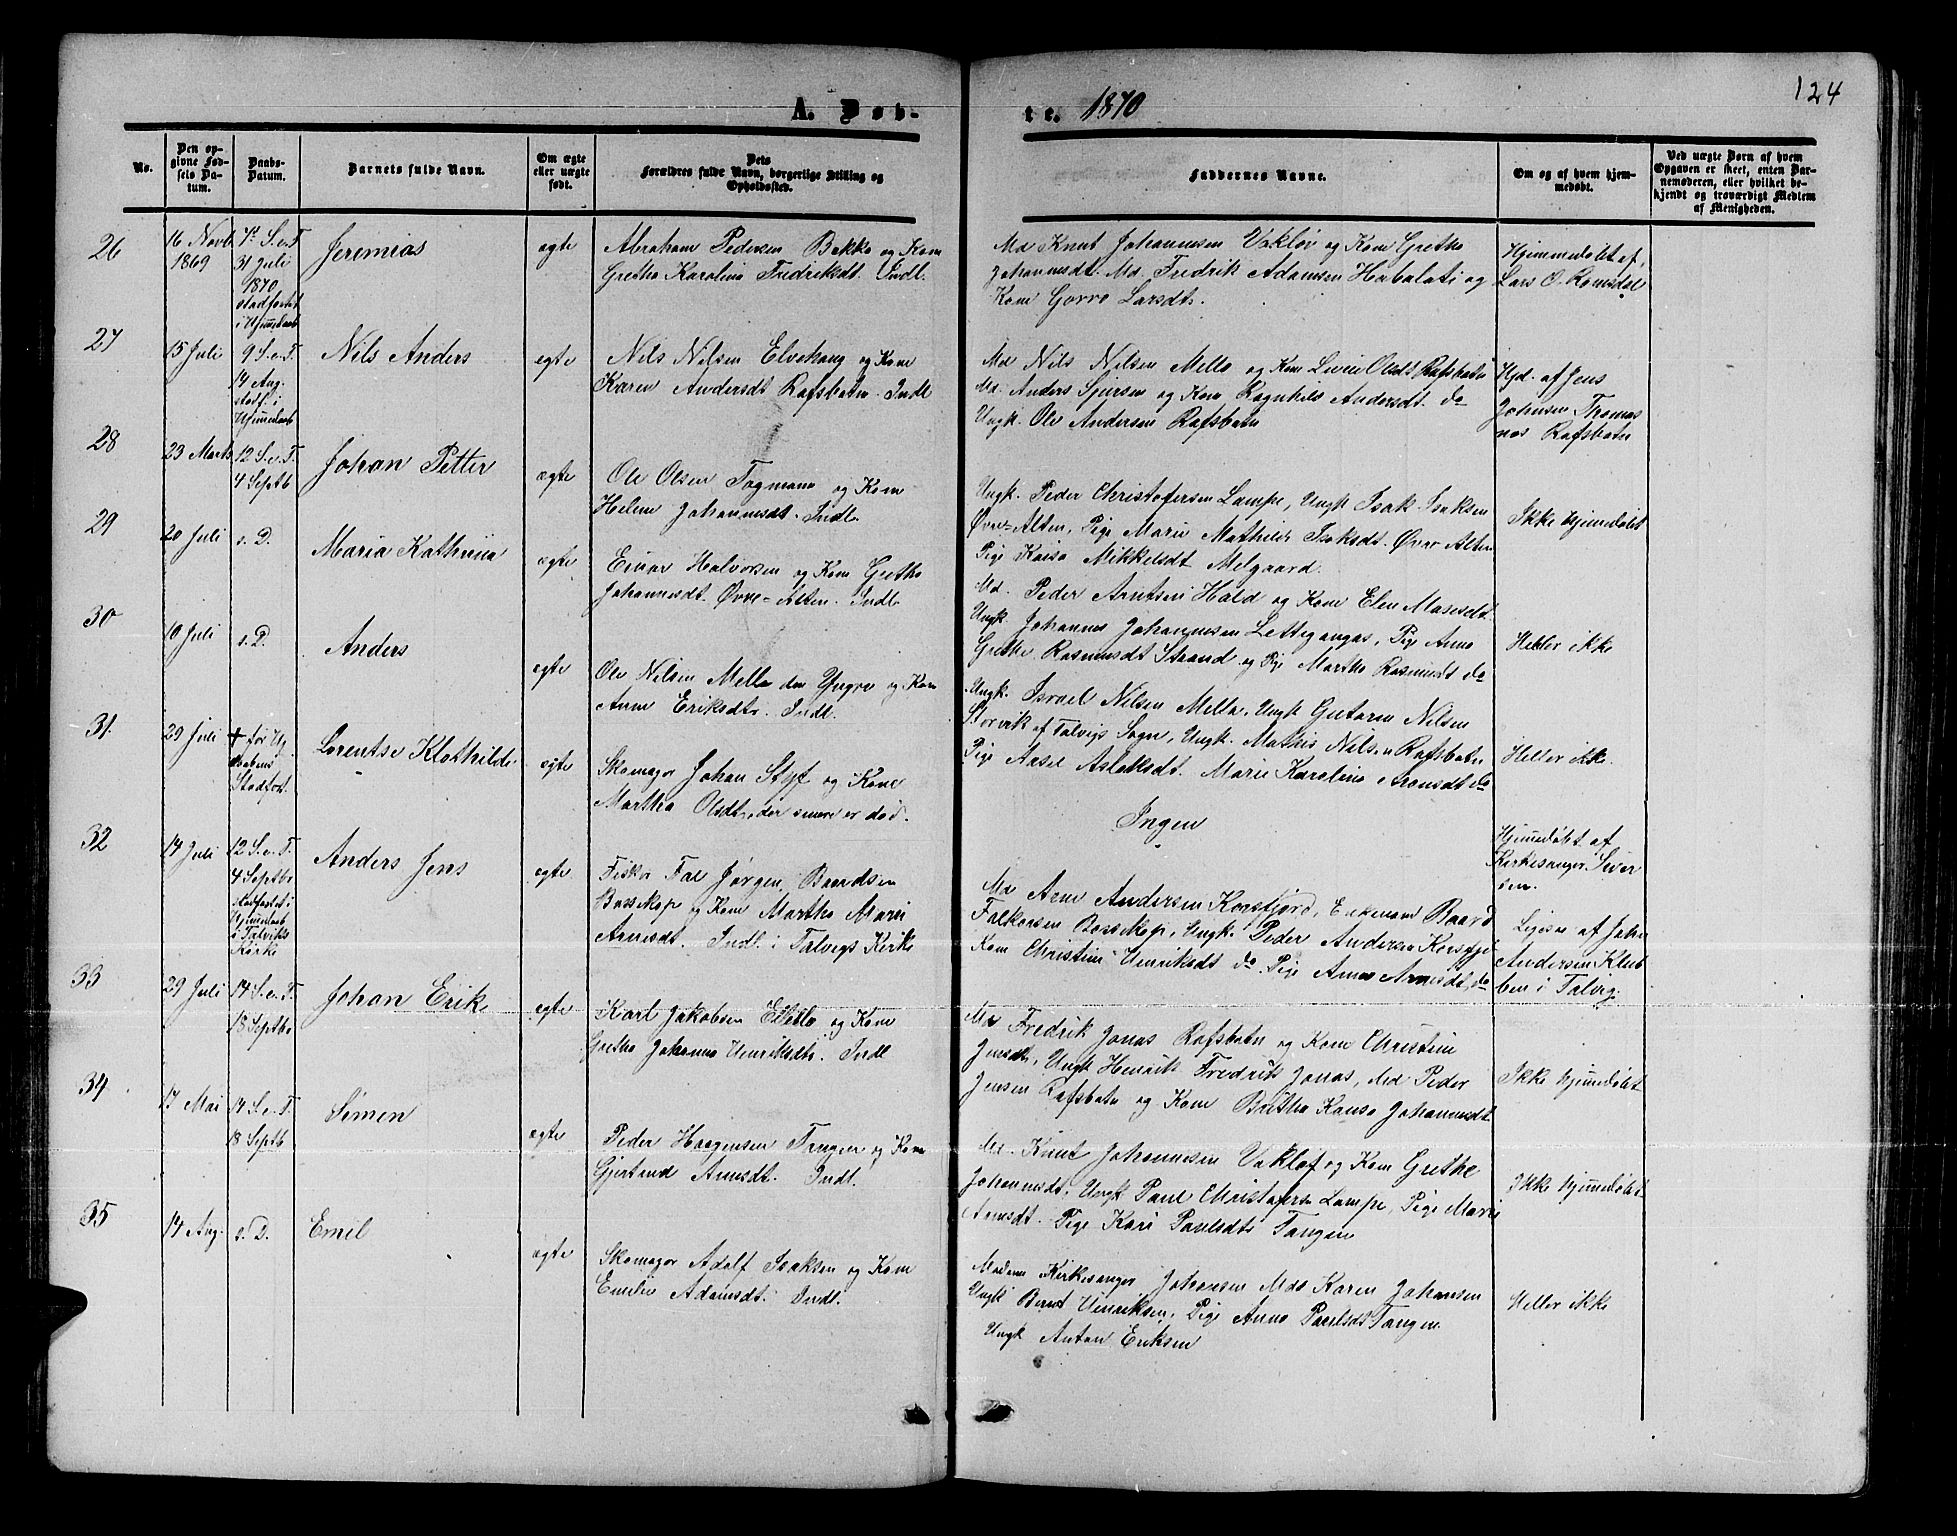 124
A. Døb-
te. 1870
No.
Den op-
givne Fød-
sels Da-
tum.
Daabs-
Datum.
Barnets fulde Navn.
Om ægte
eller uægte
født.
Dets
Forældres fulde Navn, borgerlige Stilling og
Opholdssted.
Faddernes Navne.
Om og af hvem hjem-
medøbt.
Ved uægte Børn af hvem
Opgaven er skeet, enten Bar-
nemoderen, eller hvilket be-
kjendt og troværdigt Medlem
af Menigheden.
26
16 Novb
1869
7de S.e.T
31 Juli
1870
stadfæstet
i Hjemedaab
Jeremias
ægte
Abraham Pedersen Bakke og Kone
Grethe Karolina Fredriksdt. Indl.
Md Knut Johannesen Vakløv og Kone Grethe
Johannesdt. Md. Fredrik Adamsen Habalati og
Kone Gorro Larsdt.
Hjemmedøbt af
Lars O. Romsdal
27
15 Juli
9 S.e.T.
14 Aug.
stadf. i
Hjemedaab
Nils Anders
egte
Nils Nilsen Elvebang og Kone
Karen Andersdt Rafsbotn. Indl
Md Nils Nilsen Mella og Kone Livin Olsdt Rafsbotn
Md. Anders Sjursen og Kone Ragnhild Andersdt. do
Ungk. Ole Andersen Rafsbotn
Hjd. af Jens
Johnsen Thomas
nes Rafsbotn
28
23 Marts
12 S.e.T.
4 Septb
Johan Petter
ægte
Ole Olsen Togmann og Kone
Helene Johannesdt. Indl.
Ungk. Peder Christofersen Lampe, Ungk Isak Isaksen
Øvre-Alten, Pige Marie Mathilde Isaksdt. Øvre Alten
Pige Kaisa Mikkelsdt Melgaard.
Ikke hjemedøbt
29
20 Juli
s. D.
Maria Kathrina
ægte
Einar Halvorsen og Kone Grethe
Johannesdt. Øvre-Alten. Indl.
Md. Peder Arntsen Hald og Kone Elen Masesdt.
Ungk. Johannes Johannesen Lettegangas, Pige Anne
Grethe Rasmusdt Strand og Pige Martha Rasmusdt do
Heller ikke
30
10 Juli
s. D.
Anders
egte
Ole Nilsen Mella den Yngre og Kone
Anne Eriksdtr. Indl.
Ungk. Israel Nilsen Mella, Ungk Gutorm Nilsen
Storvik af Talvigs Sogn, Ungk. Mathis Nilsen Rafsbotn
Pige Aasel Aslaksdt. Marie Karolina Aronsdt do
Heller ikke.
31.
29 Juli
+ før Hj.
daabens
Stadfæst.
Lorentse Klothilde
egte
Skomager Johan Styf og Kone
Martha Olsdt, der senere er død.
Ingen
Hjemmedøbt af
Kirkesanger Siver
sen.
32
14 Juli
12 S.e.T.
4 Septbr
stadfæstet i
Hjemmedaab
i Talviks
Kirke
Anders Jens
egte
Fisker Fal Jørgen Baardsen
Bossekop og Kone Martha Marie
Arnesdt. Indl. i Talvigs Kirke
Md Arne Andersen Korsfjord, Enkemand Baard
Falkorsen Bossekop, Ungk. Peder Andersen Korsfjd
Kone Christine Henriksdt do. Pige Anne Arnesdt, do
Ligesaa af John
Andersen Klub
ben i Talvig.
33
29 Juli
14 S.e.T.
18 Septbr
Johan Erik
egte
Karl Jakobsen Ellila og Kone
Grethe Johanna Henriksdtr. Indl
Md Fredrik Jonas Rafsbotn og Kone Christine
Jensdt, Ungk Henrik Fredrik Jonas, Md Peder
Jensen Rafsbotn og Kone Britha Kaisa Johannesdt.
Ikke hjemedøbt
34
17 Mai
14 S.e.T.
18 Septb
Simen
ægte
Peder Haagensen Tangen og Kone
Gjertrud Arnesdt. Indl.
Md. Knut Johannesen Vakløf og Kone Grethe
Johannesdt, Ungk Paul Christofersn Lampe, Pige Marie
Arnesdt. Pige Kari Paulsdtr Tangen
Ikke hjemedøbt
35
14 Aug.
s. D.
Emil
ægte
Skomager Adolf Isaksen og Kone
Emilie Adamsdt. Indl.
Madame Kirkesanger Johansen Mds Karen Johansen
Ungk Bernt Henriksen, Pige Anne Paulsdt Tangen
Ungk Anton Eriksen
Heller ikke